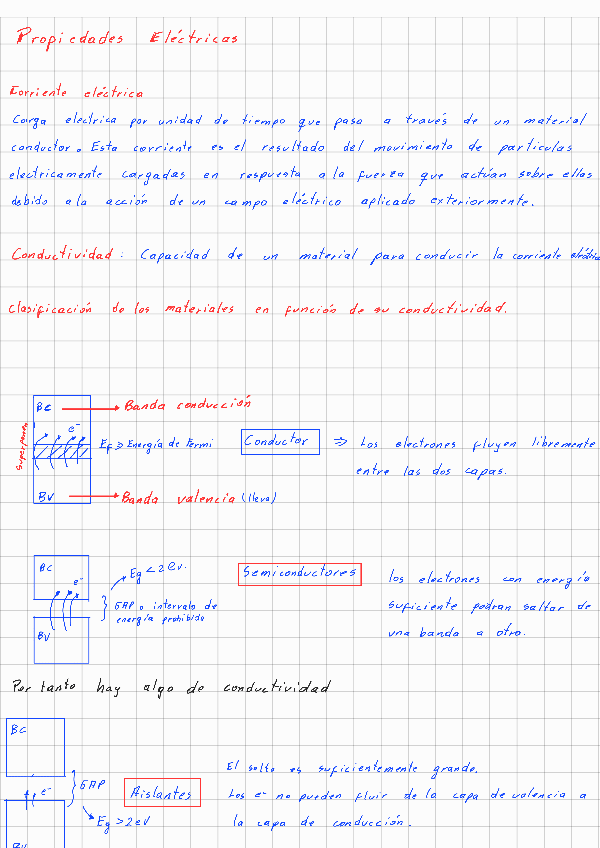 Propiedades Eléctricas
Corriente eléctrica
Carga electrica por unidad de tiempo que pasa a través de un material
conductor. Esta corriente es el resultado del movimiento de partículas
electricamente cargadas en respuesta a la fuerza que actúan sobre ellas
debido a la acción de un campo eléctrico aplicado exteriormente.
Conductividad: Capacidad de un material para conducir la corriente eléctrica
Clasificación de los materiales en función de su conductividad.
BC → Banda conducción
Superponen
e⁻
EF ⇒ Energía de Fermi
Conductor ⇒ Los electrones fluyen libremente
entre las dos capas.
BV → Banda valencia (llena)
BC
e⁻
BV
Eg < 2 eV.
GAP o intervalo de
energía prohibida
Semiconductores
los electrones con energía
suficiente podran saltar de
una banda a otro.
Por tanto hay algo de conductividad
BC
e⁻
BV
GAP
Eg > 2 eV
Aislantes
El salto es suficientemente grande.
Los e⁻ no pueden fluir de la capa de valencia a
la capa de conducción.